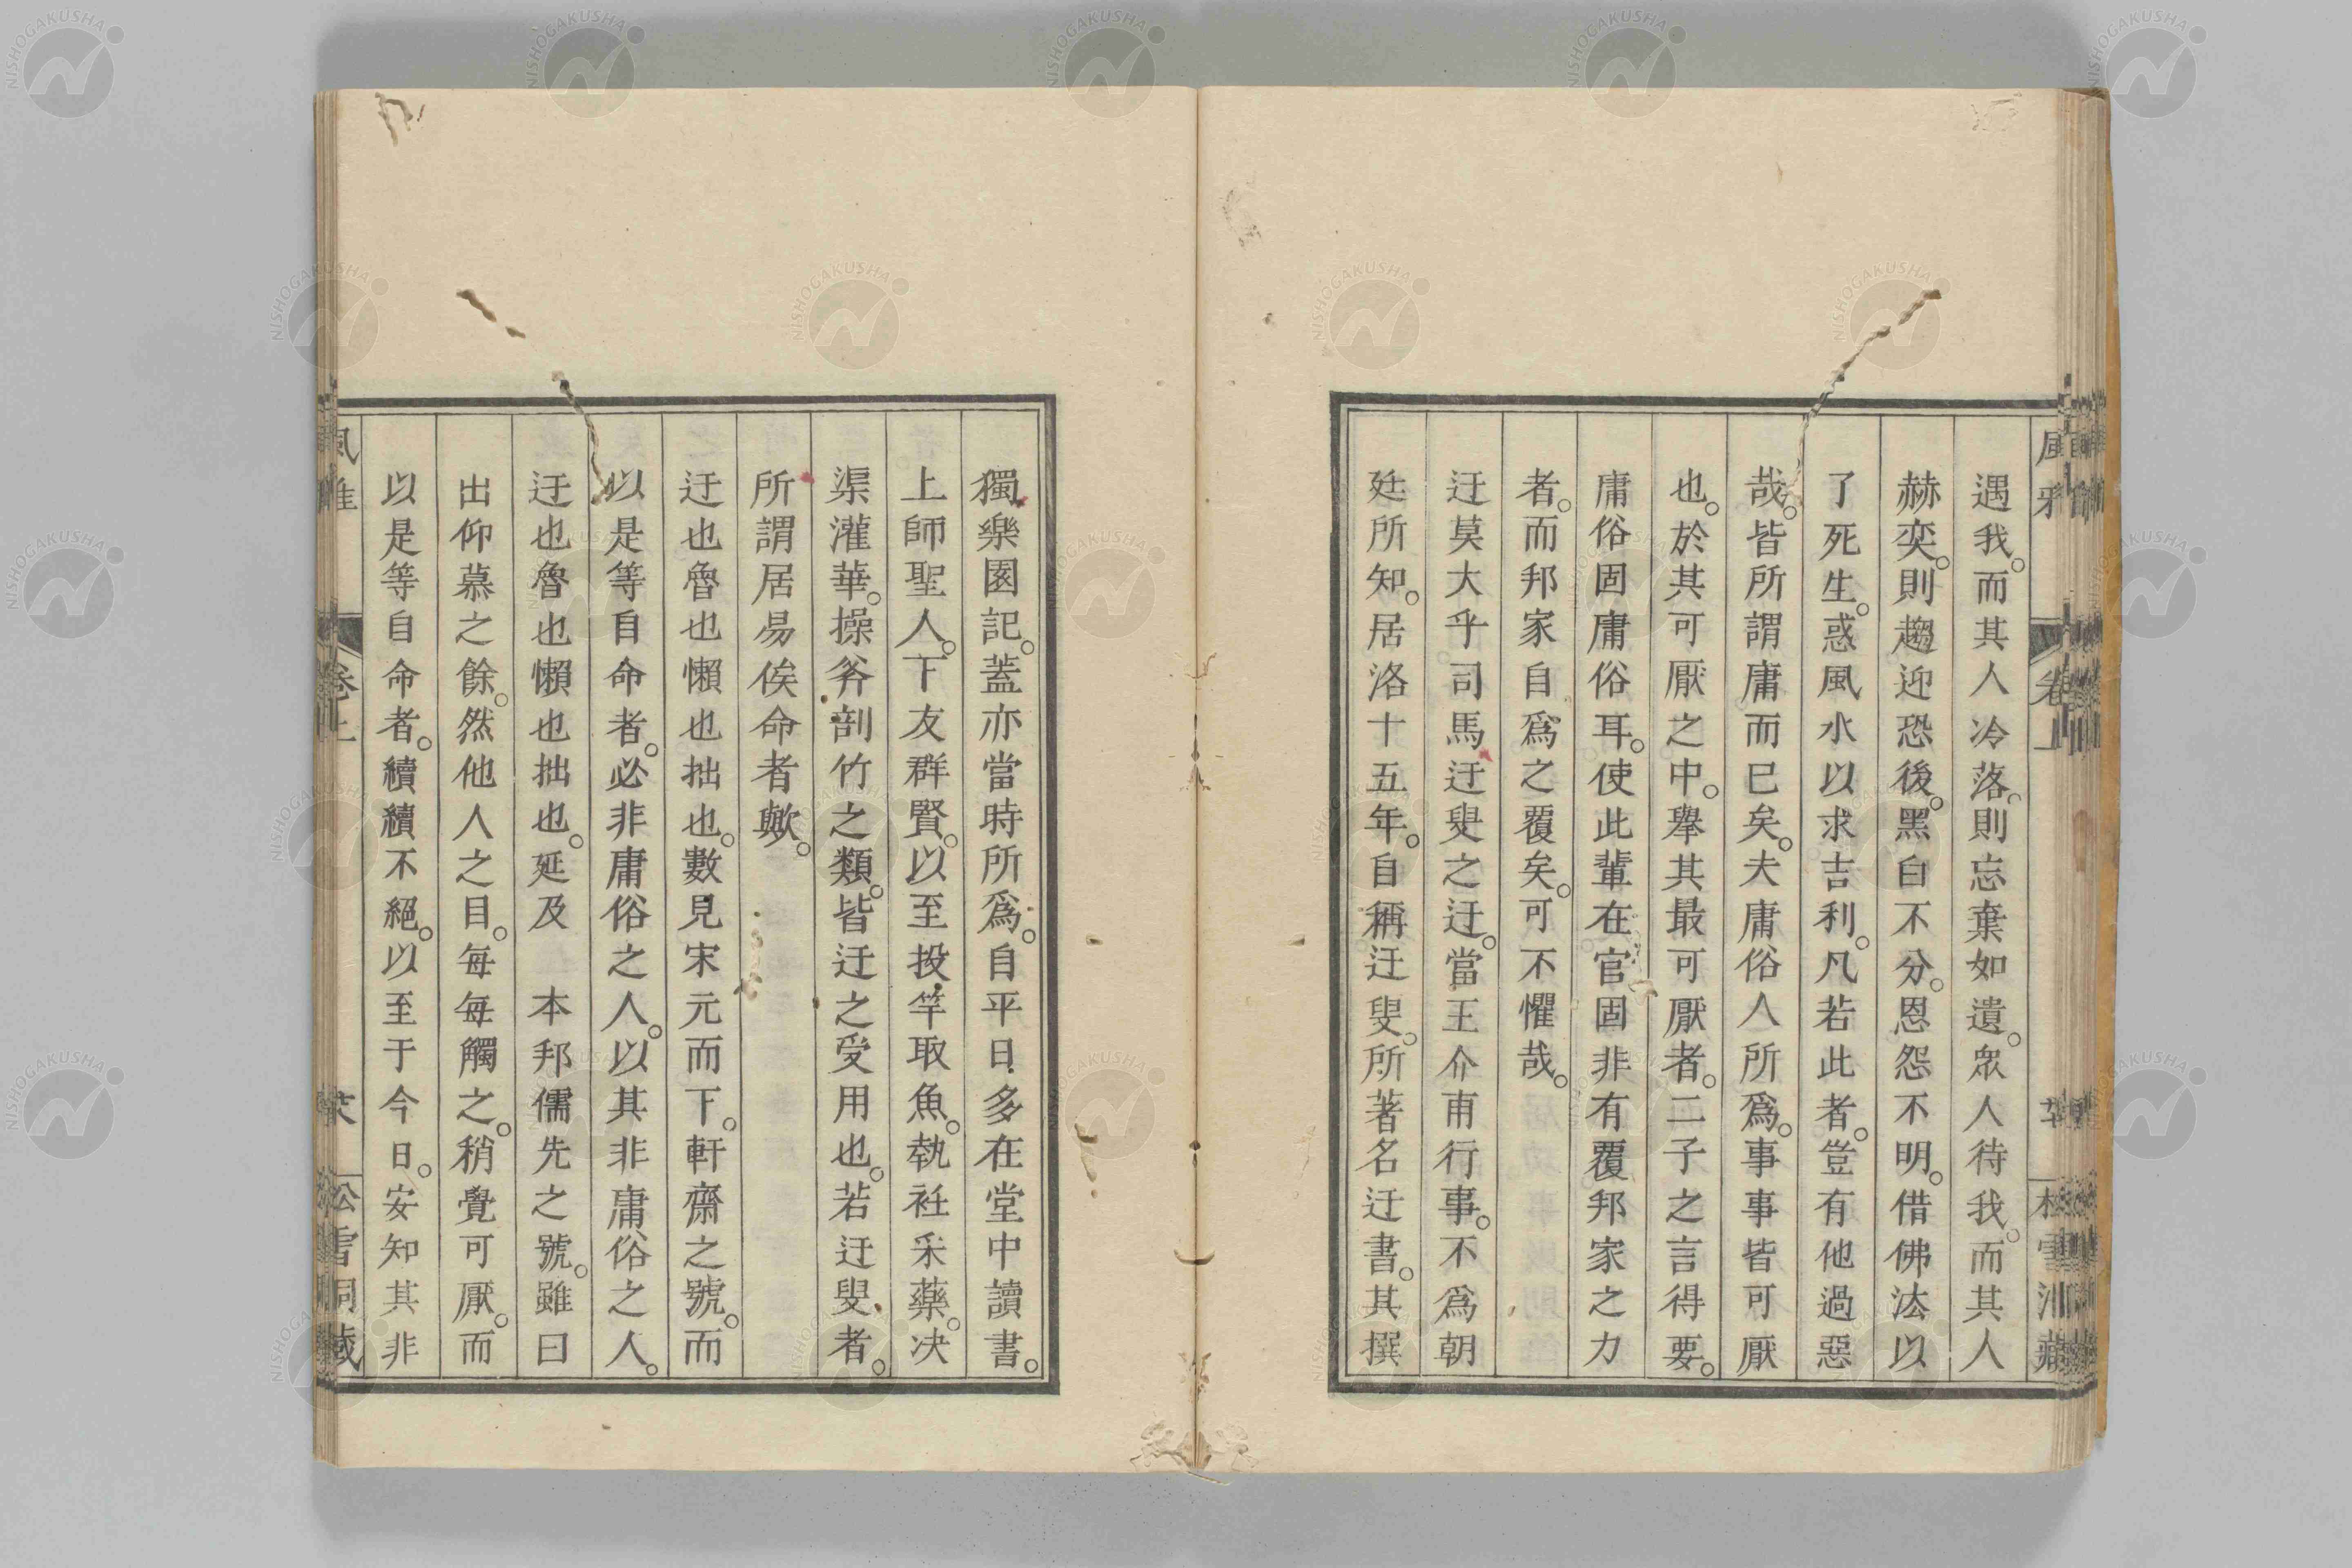 遇我。而其人冷落。則忘棄如遺。衆人待我。而其人
赫奕。則趨迎恐後。黑白不分。恩怨不明。借佛法以
了死生。惑風水以求吉利。凡若此者。豈有他過惡
哉。皆所謂庸而已矣。夫庸俗人所爲。事事皆可厭
也。於其可厭之中。舉其最可厭者。二子之言得要。
庸俗固庸俗耳。使此輩在官固非有覆邦家之力
者。而邦家自爲之覆矣。可不懼哉。
迂莫大乎司馬迂叟之迂。當王介甫行事。不爲朝
廷所知。居洛十五年。自稱迂叟。所著名迂書。其撰
獨樂園記。蓋亦當時所爲。自平日多在堂中讀書。
上師聖人。下友群賢。以至投竿取魚。執衽采藥。决
渠灌華。操斧剖竹之類。皆迂之受用也。若迂叟者。
所謂居易俟命者歟。
迂也魯也懶也拙也。數見宋元而下。軒齋之號。而
以是等自命者。必非庸俗之人。以其非庸俗之人。
迂也魯也懶也拙也。延及　本邦儒先之號。雖曰
出仰慕之餘。然他人之目。每每觸之。稍覺可厭。而
以是等自命者。續續不絕。以至于今日。安知其非
卷上
NISHOGAKUSHA